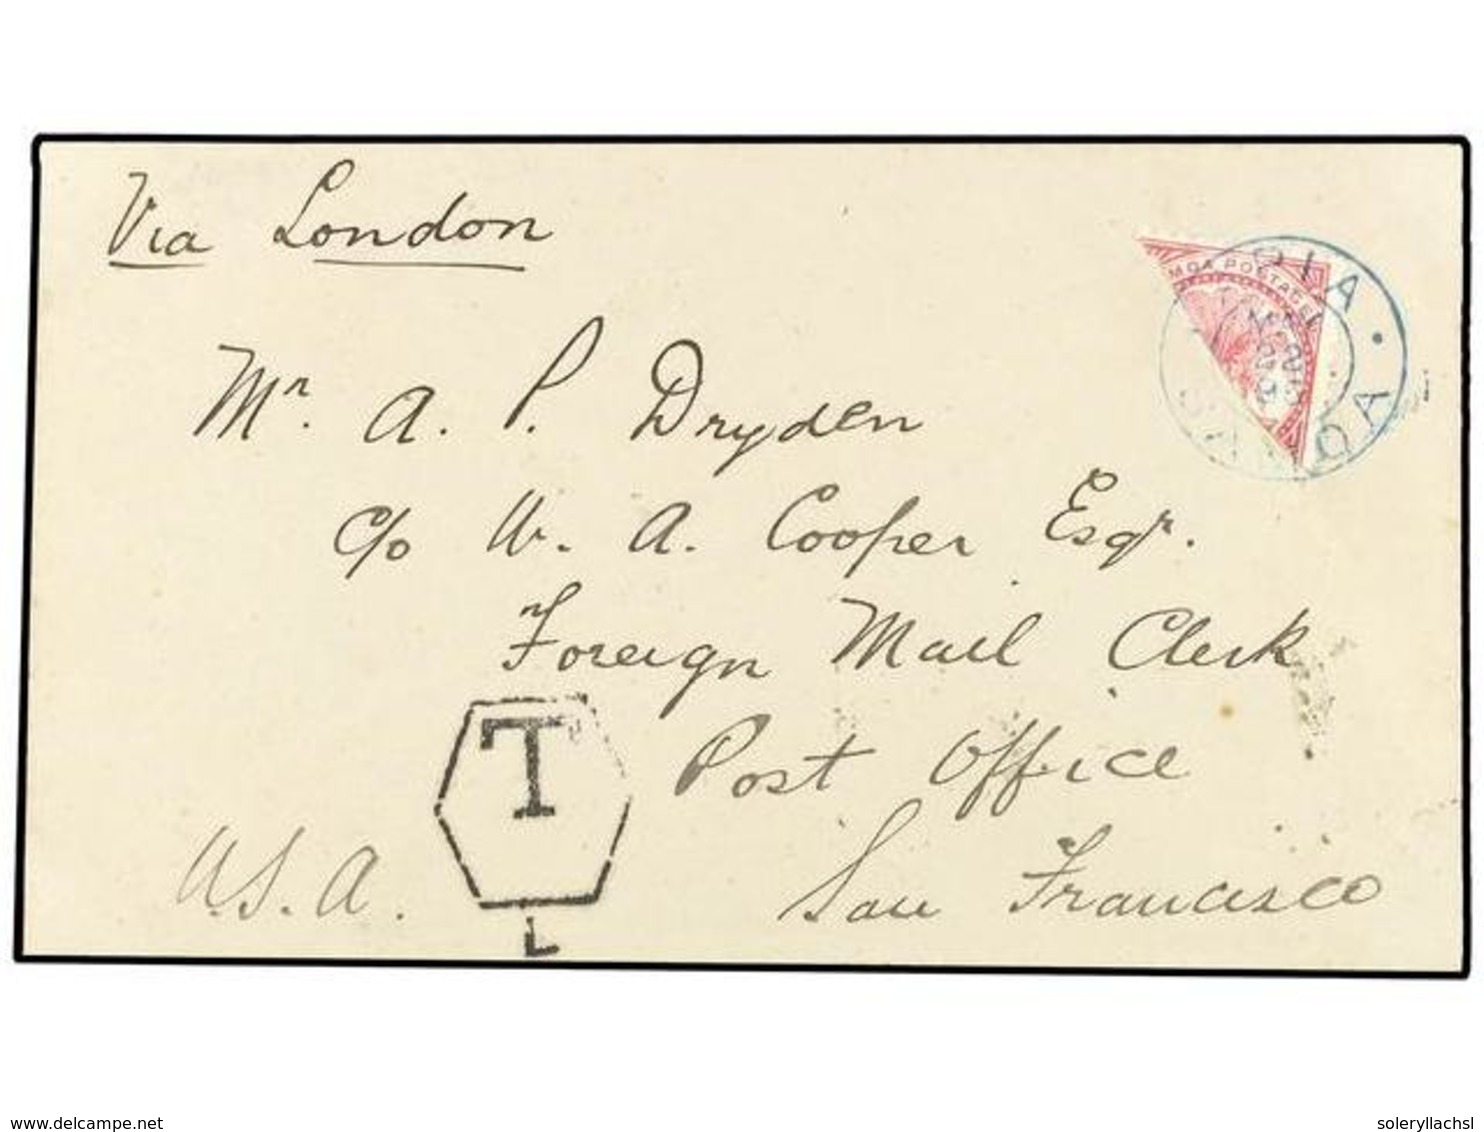 Via London
MOA POSTAGE
APIA · SAMOA
Mr. A. P. Dryden
c/o W. A. Cooper Esqr.
Foreign Mail Clerk
T
Post Office
L
U.S.A. San Francisco
www.delcampe.net
soleryllachsl